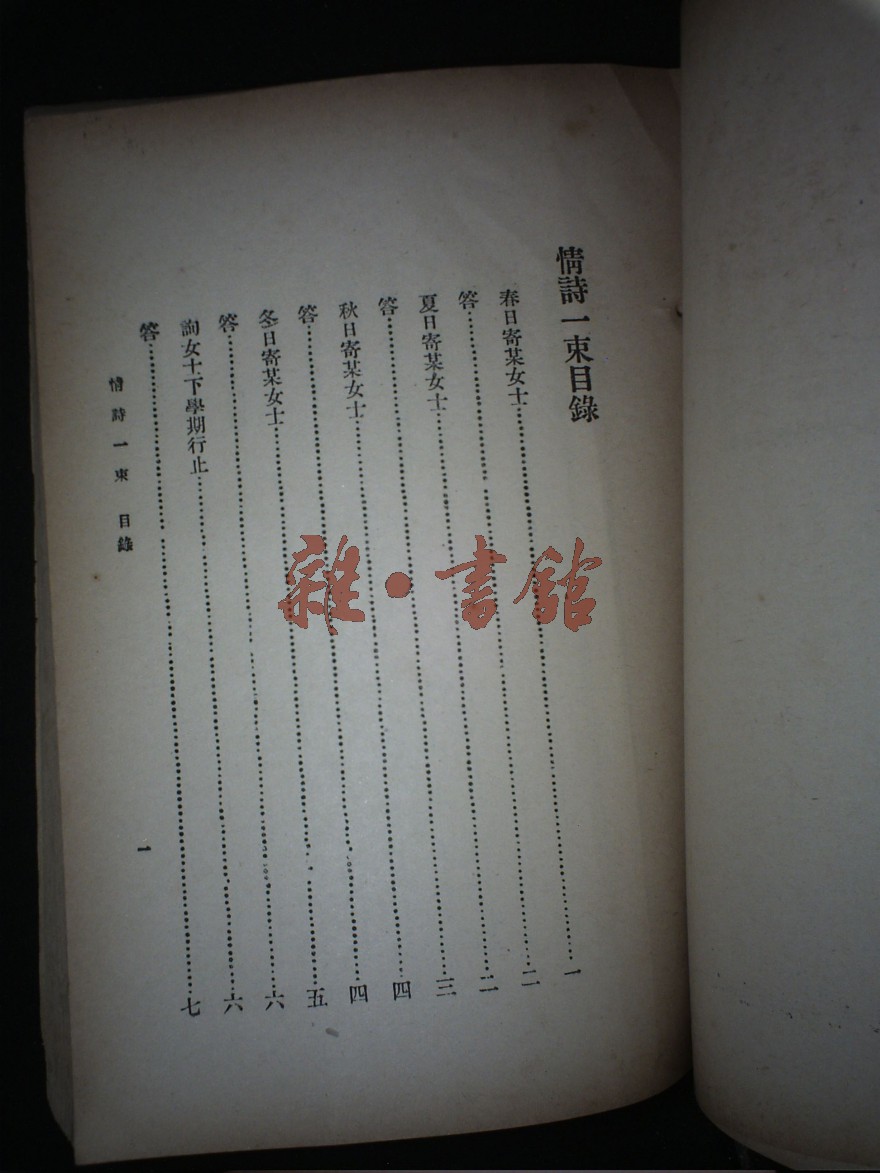 情詩一束目錄
春日寄某女士……一
答……二
夏日寄某女士……二
答……三
秋日寄某女士……四
答……四
冬日寄某女士……五
答……六
詢女士下學期行止……六
答……七
情詩一束 目錄
一
雜·書館